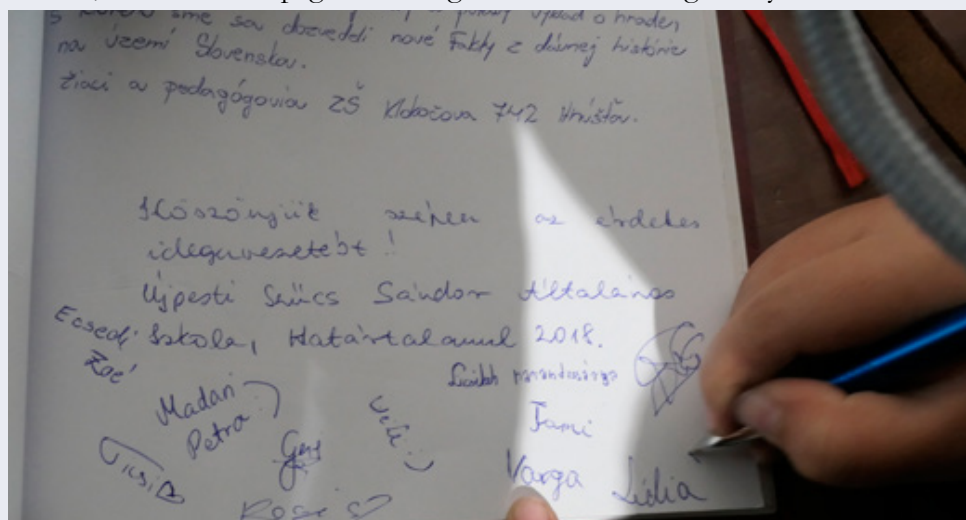 sme sa dozvedeli nové fakty z dávnej histórie
na území Slovenska.
žiaci a pedagógovia ZŠ Klokočova 742 Hnúšťa.
Köszönjük szépen az érdekes
idegenvezetést!
Újpesti Szűcs Sándor Általános
Iskola, Határtalanul 2018.
Ecsedi
Zoé
Madari
Petra :)
Vicsi
Geri
Fami
Varga Lídia